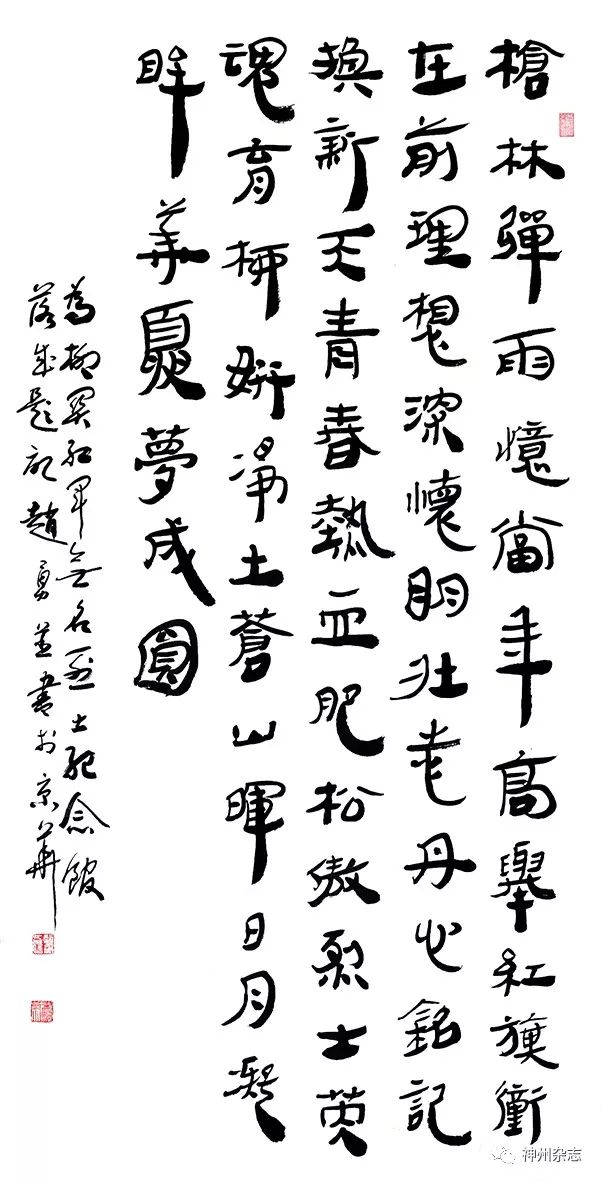 槍林彈雨憶當年高舉紅旗衝
在前理想深懷明壯志丹心銘記
換新天青春熱血肥松傲烈士英
魂育柳妍淨土蒼山暉日月凝
眸華夏夢成圓
為柳關紅軍無名烈士紀念館
落成題記趙勇並書於京華
神州杂志